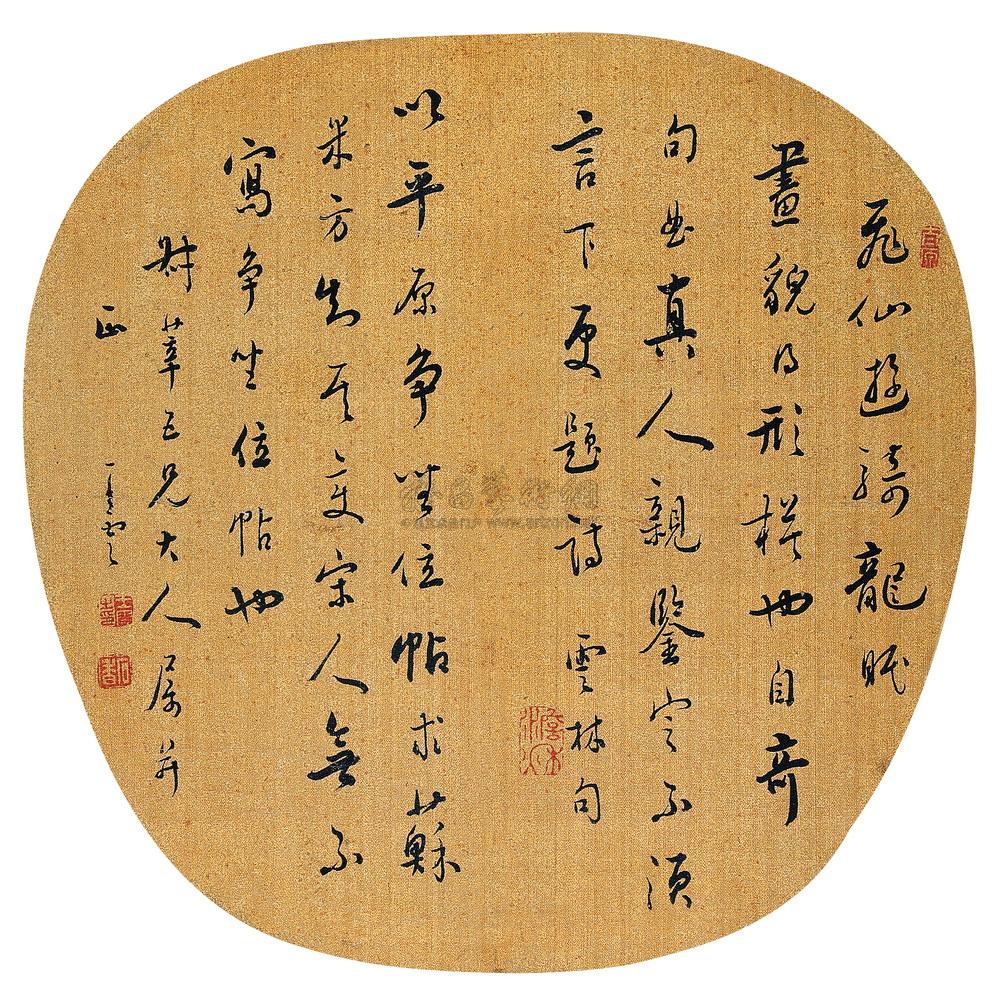 飛仙遊騎龍眠
畫貌得形模也自奇
句曲真人親鑒定不須
言下更題詩 雲林句
以平原爭坐位帖求蘇
米方知其變宋人無不
寫爭坐位帖也
莘五兄大人屬并
正